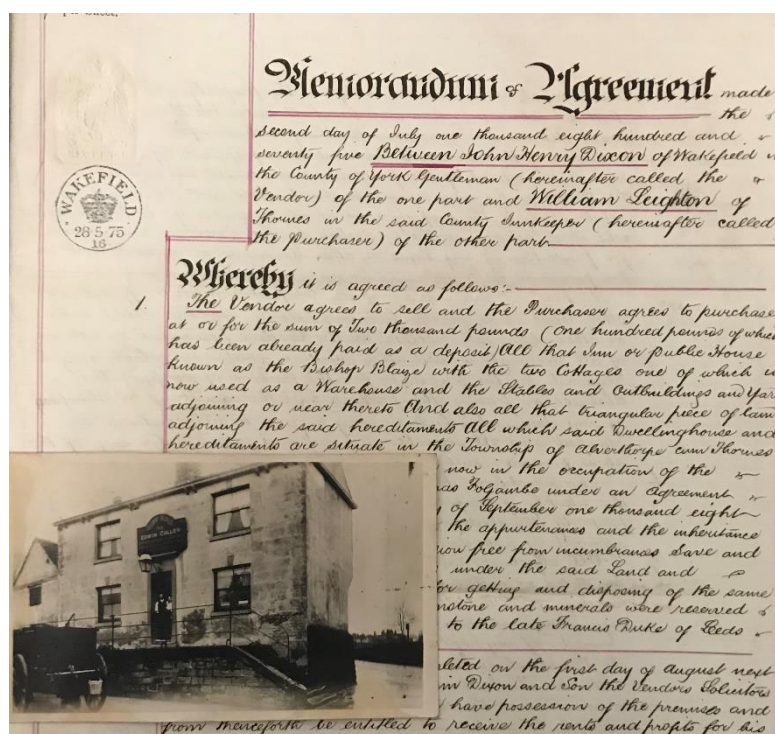 Memorandum of Agreement made
the
second day of July one thousand eight hundred and
seventy five Between John Henry Dixon of Wakefield
the County of York Gentleman (hereinafter called the
Vendor) of the one part and William Leighton of
Thornes in the said County Innkeeper (hereinafter called
the Purchaser) of the other part
WAKEFIELD
28·5·75
16
Whereby it is agreed as follows:-
1. The Vendor agrees to sell and the Purchaser agrees to purchase
at or for the sum of Two thousand pounds (One hundred pounds of which
has been already paid as a deposit) All that Inn or Public House
known as the Bishop Blaize with the two Cottages one of which is
now used as a Warehouse and the Stables and Outbuildings and Yar
adjoining or near thereto And also all that triangular piece of lan
adjoining the said hereditaments All which said Dwellinghouse and
hereditaments are situate in the Township of Alverthorpe cum Thornes
now in the occupation of the
as Foljambe under an agreement
of September one thousand eight
the appurtenances and the inheritance
free from incumbrances Save and
under the said Land and
for getting and disposing of the same
nstone and minerals were reserved
to the late Francis Duke of Leeds
EDWIN COLLEN
leted on the first day of August next
Dixon and Son the Vendors Solicitors
have possession of the premises and
from thenceforth be entitled to receive the rents and profits for his